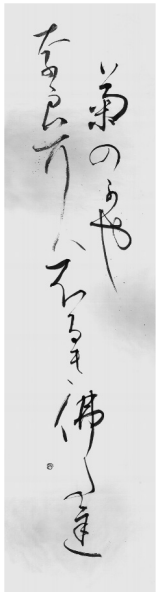 菊のかや
奈良にハふるき佛達